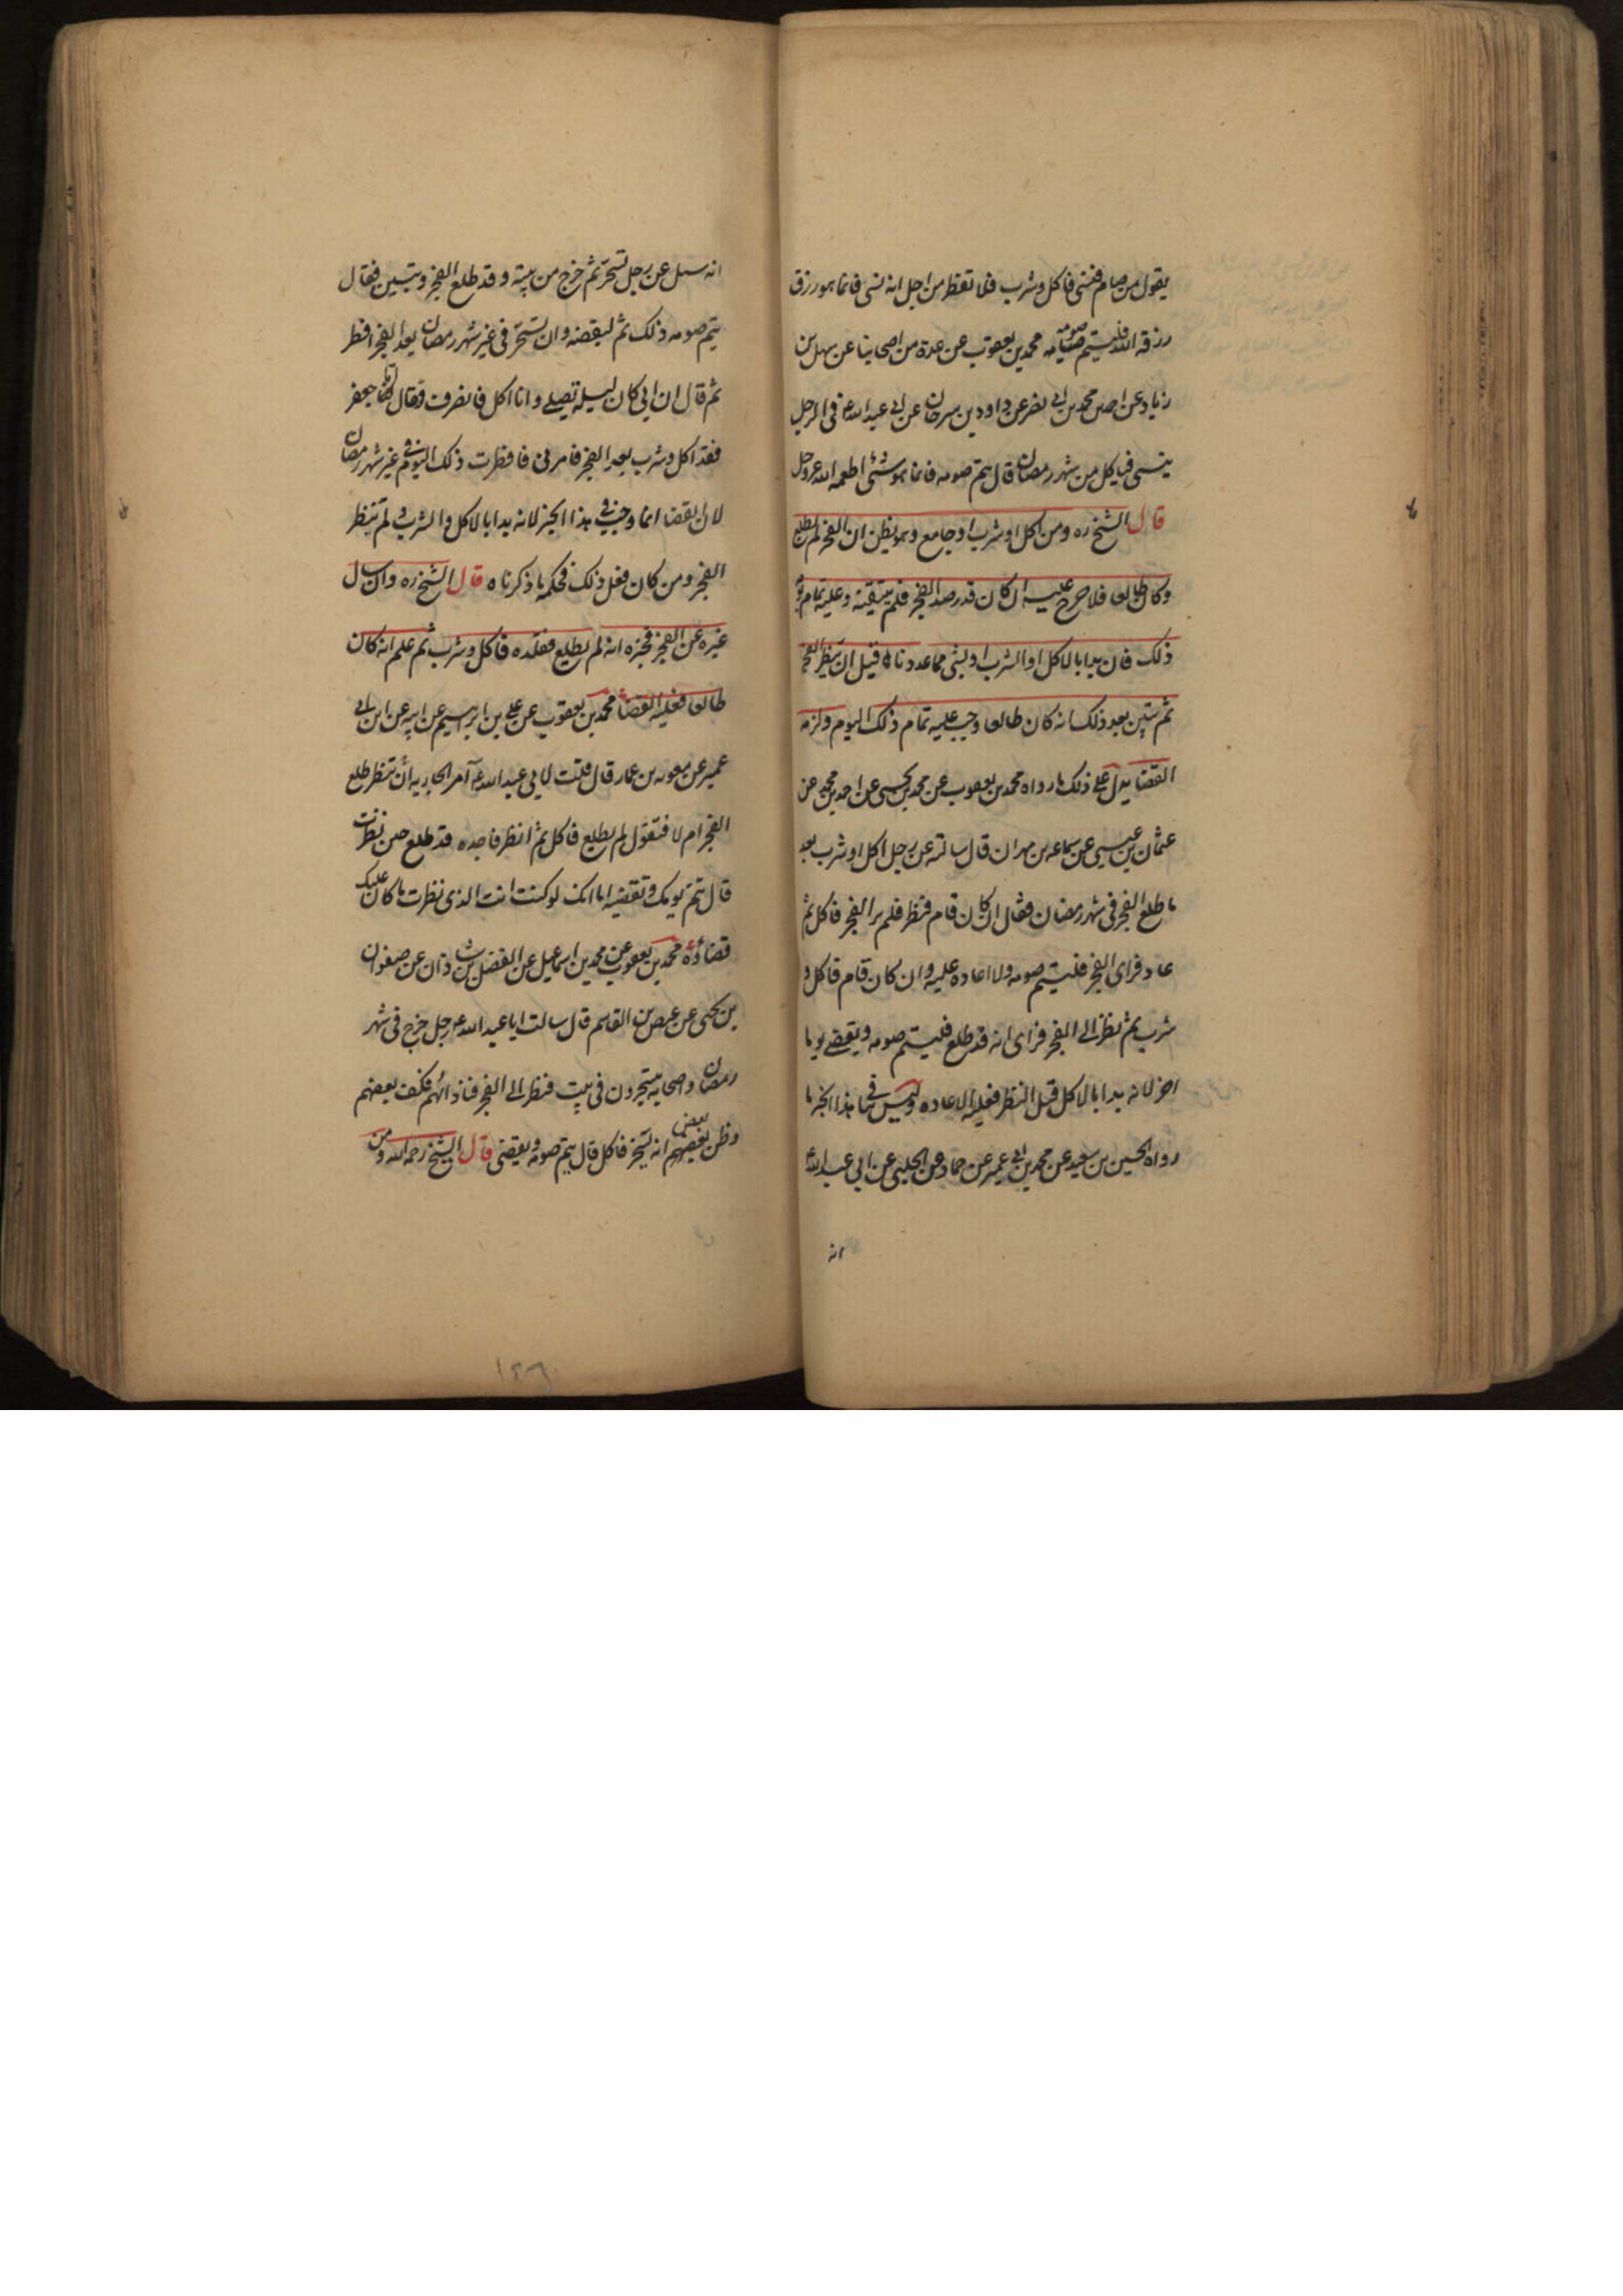 يقول من صام فنسى فاكل وشرب فلا تفطر من اجل انه نسى فانما هو رزق
رزقه الله فليتم صيامه صومه محمد بن يعقوب عن عدة من اصحابنا عن سهل بن
زياد عن احمد بن محمد بن ابى نصر عن داود بن سرحان عن ابى عبد الله ع فى الرجل
ينسى فياكل من شهر رمضان قال يتم صومه فانما هو شئ اطعمه الله عز وجل
قال الشيخ ره ومن اكل او شرب او جامع وهو يظن ان الفجر لم يطلع
وكان طالعا فلا حرج عليه ان كان قد رصد الفجر فلم يتيقنه وعليه تمام
ذلك فان بدا بالاكل او الشرب او بشئ مما عددناه قبل ان ينظر الفجر
ثم تبين بعد ذلك انه كان طالعا وجب عليه تمام ذلك اليوم ولزمه
القضا يدل على ذلك ما رواه محمد بن يعقوب عن محمد بن يحيى عن احمد بن محمد عن
عثمان بن عيسى عن سماعه بن مهران قال سالته عن رجل اكل او شرب بعد
ما طلع الفجر فى شهر رمضان فقال ان كان قام فنظر فلم ير الفجر فاكل ثم
عاد فراى الفجر فليتم صومه ولا اعاده عليه وان كان قام فاكل و
شرب ثم نظر الى الفجر فراى انه قد طلع فليتم صومه ويقضى يوما
اخر لانه بدا بالاكل قبل النظر فعليه الاعاده وليس فى هذا الخبر ما
رواه الحسين بن سعيد عن محمد بن ابى عمير عن حماد عن الحلبى عن ابى عبد الله ع
انه
انه سىل عن رجل تسحر ثم خرج من بيته وقد طلع الفجر وتبين فقال
يتم صومه ذلك ثم ليقضه وان تسحر فى غير شهر رمضان بعد الفجر افطر
ثم قال ان ابى كان ليله يصلى وانا اكل فانصرف فقال اما جعفر
فقد اكل وشرب بعد الفجر فامرنى فافطرت ذلك اليوم فى غير شهر رمضان
لان القضا انما وجب فى هذا الخبر لانه بدا بالاكل والشرب ولم ينظر
الفجر ومن كان فعل ذلك فحكمه ما ذكرناه قال الشيخ ره وان سال
غيره عن الفجر فخبره انه لم يطلع فقلده فاكل وشرب ثم علم انه كان
طالعا فعليه القضا محمد بن يعقوب عن على بن ابرهيم عن ابيه عن ابن ابى
عمير عن معويه بن عمار قال قلت لابى عبد الله ع آمر الجاريه ان تنظر طلع
الفجر ام لا فتقول لم يطلع فاكل ثم انظر فاجده قد طلع حين نظرت
قال تتم يومك وتقضيه اما انك لو كنت انت الذى نظرت ما كان عليك
قضاؤه محمد بن يعقوب عن محمد بن اسماعيل عن الفضل بن شاذان عن صفوان
بن يحيى عن عيص بن القاسم قال سالت ابا عبد الله ع رجل خرج فى شهر
رمضان واصحابه يتسحرون فى بيت فنظر الى الفجر فناداهم فكف بعضهم
وظن بعضهم بعض انه يسخر فاكل قال يتم صومه ويقضى قال الشيخ رحمه الله ومن